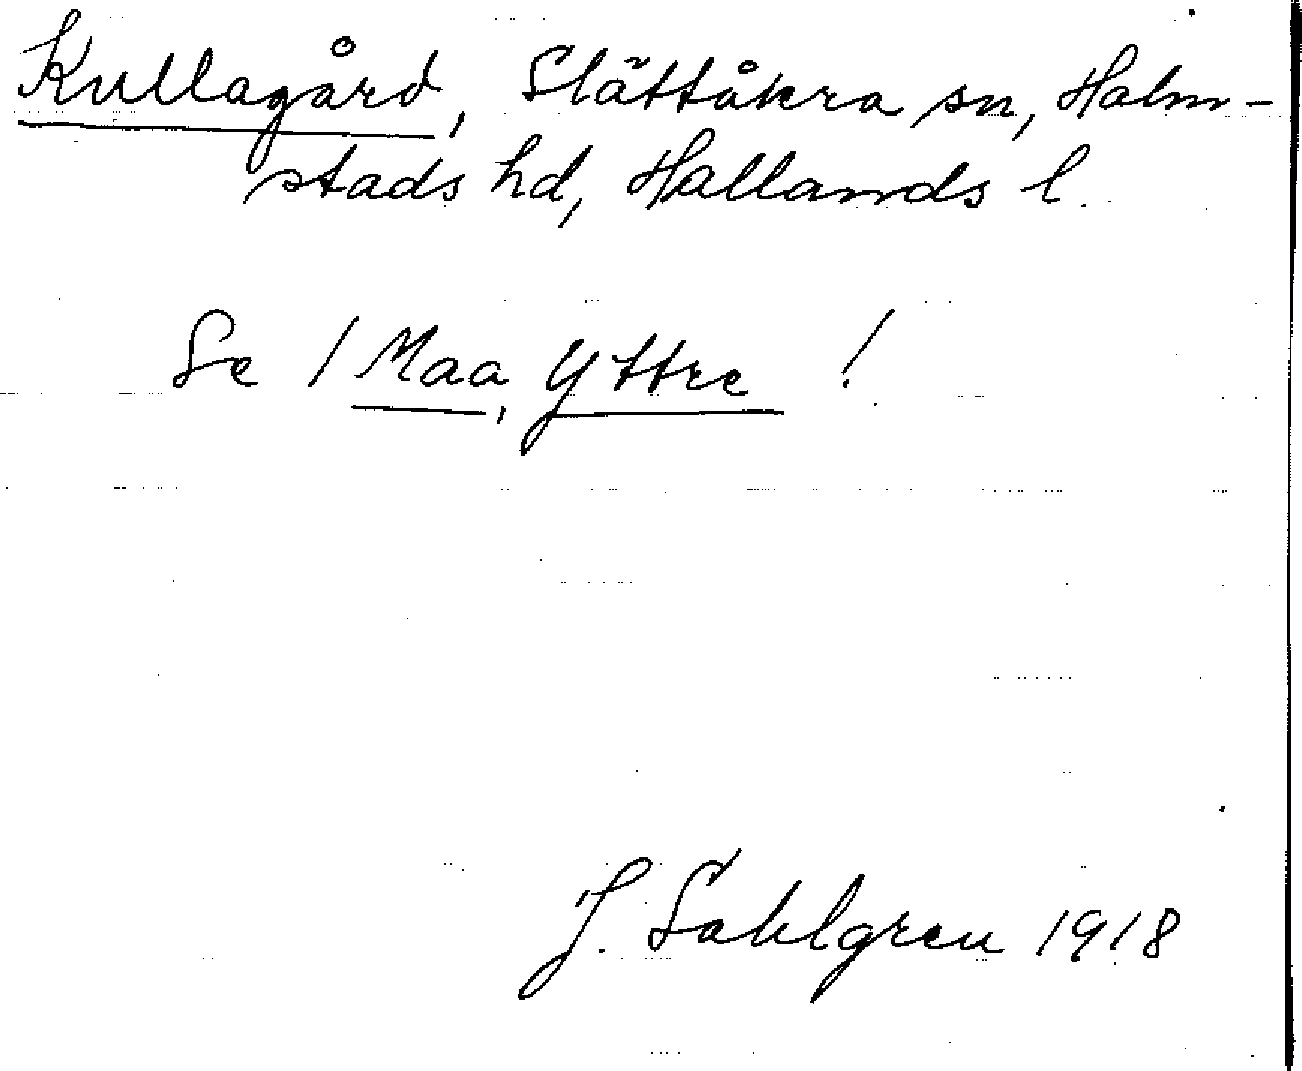 Kullagård, Slättåkra sn, Halm-
stads hd, Hallands l.
Se / Maa, Yttre !
J. Sahlgren 1918